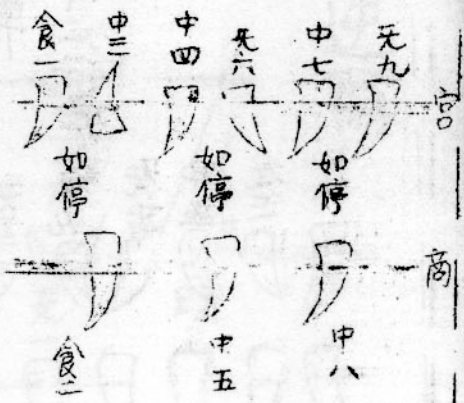 食一 中三 中四 无六 中七 无九 宮
如停 如停 如停
商
食二 中五 中八